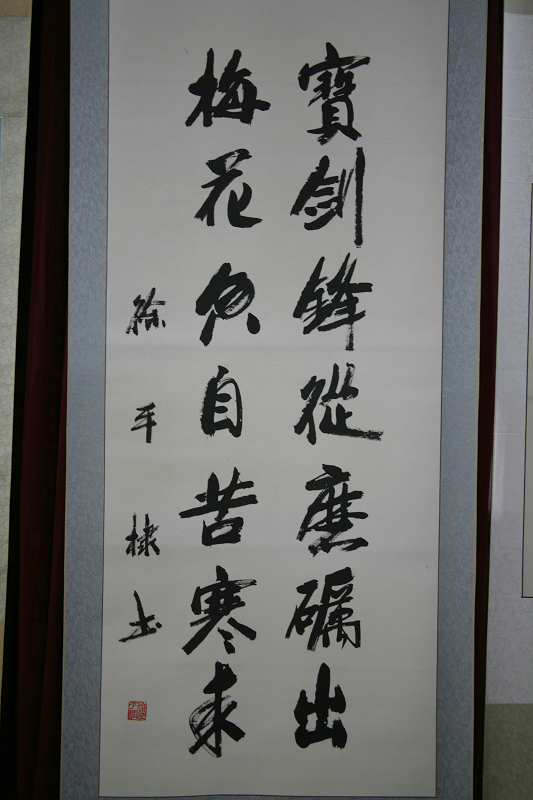 寶劍鋒從磨礪出
梅花香自苦寒來
徐平棣书